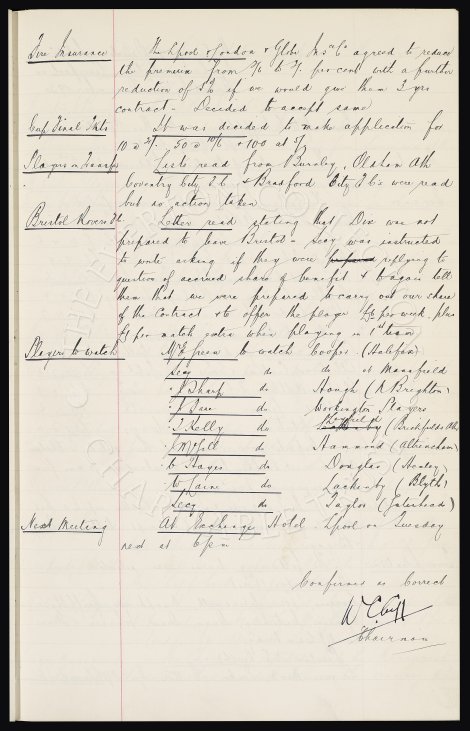 Fire Insurance The Lpool & London & Globe Ins Co agreed to reduce
the premium from to per cent with a further
reduction of if we would give them 3 yrs
contract - Decided to accept same
Cup Final Tkts It was decided to make application for
10 @ 50 @ 10/6 & 100 at 5/
Players on Transfer Lists read from Burnley, Oldham Ath
Coventry City F.C. & Bradford City F.C's were read
but no action taken
Bristol Rovers Letter read stating that Dix was not
prepared to leave Bristol - Secy was instructed
to write asking if they were replying to
question of accrued share of benefit & to again tell
them that we were prepared to carry out our share
of the contract & to offer the player per week plus
per match extra when playing in 1st team
Players to watch Mr Green to watch Cooper (Halifax)
Secy do do at Mansfield
" J Sharp do Hough (N Brighton)
" do Workington Players
" T Kelly do (Ath)
" do Hammond (Altrincham)
" C Hayes do Douglas (Henley)
" do (Blyth)
" Secy do Taylor (Gateshead)
Next Meeting At Exchange Hotel Lpool on Tuesday
next at 6 pm
Confirmed as Correct
W C Cuff
Chairman